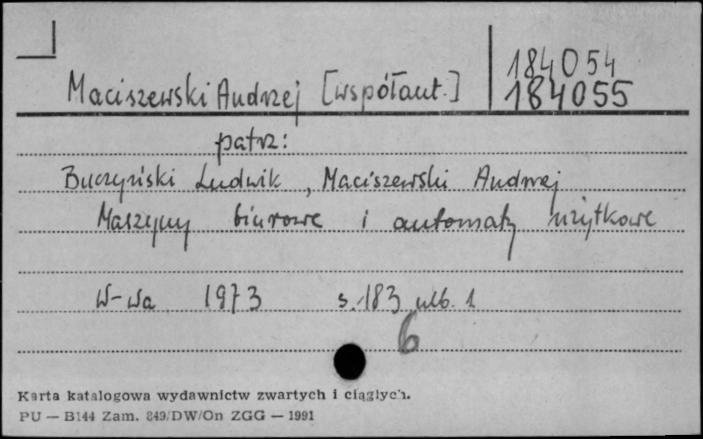 Maciszewski Andrzej [współaut.]
184054
184055
patrz:
Buczyński Ludwik, Maciszewski Andrzej
Maszyny biurowe i automaty użytkowe
W-wa 1973 s. 183 nlb. 1
6
Karta katalogowa wydawnictw zwartych i ciągłych.
PU — B144 Zam. 849/DW/On ZGG — 1991